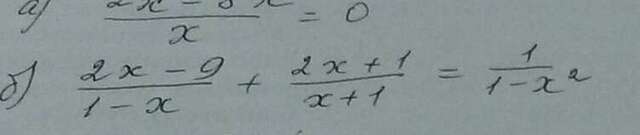 а) / x = 0
б) (2x - 9)/(1 - x) + (2x + 1)/(x + 1) = 1/(1 - x²)